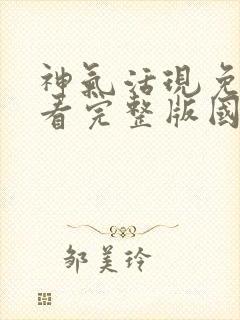 神氣活現免
看完整版國
邹美玲